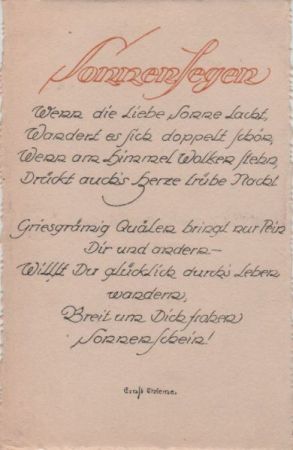 Sonnensegen
Wenn die liebe Sonne lacht,
Wandert es sich doppelt schön,
Wenn am Himmel Wolken stehn,
Drückt auch's Herze trübe Nacht.
Griesgrämig Quälen bringt nur Pein
Dir und andern—
Willst Du glücklich durch's Leben
wandern,
Breit um Dich frohen
Sonnenschein!
Ernst Thieme.